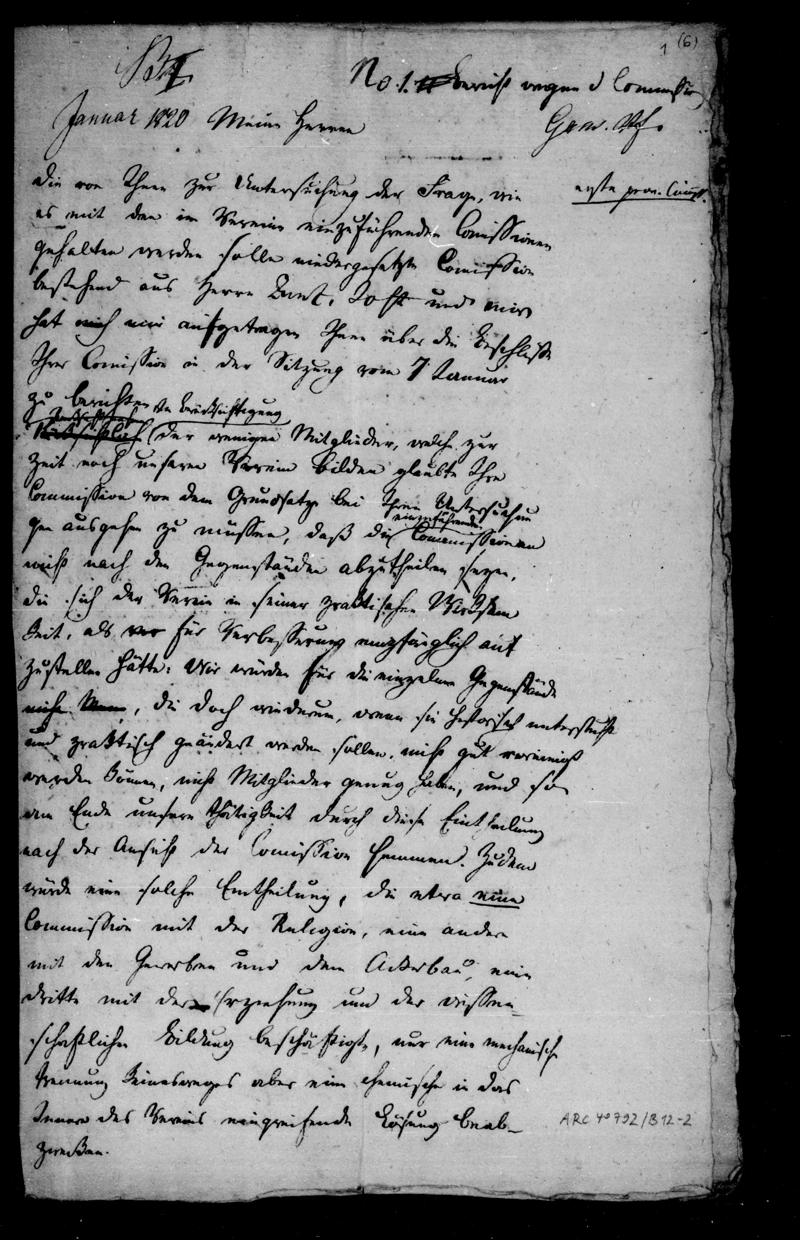 1 (6)
No. 1. Bericht wegen d Commission
Januar 1820 Meine Herren
erste prov. Comiss.
Die von Ihnen zur Untersuchung der Frage, wie
es mit den im Vereine einzuführenden Comissionen
gehalten werden solle niedergesetzte Comission
bestehend aus Herrn Zunz, Jost und mir
hat mich nun aufgetragen Ihnen über die Beschlüsse
Ihrer Comission in der Sitzung vom 7 Januar
zu berichten
in Berücksichtigung
der wenigen Mitglieder, welche zur
Zeit noch unseren Verein bilden glaubte Ihre
Commission von dem Grundsatze bei Ihren Untersuchun
einzuführenden
gen ausgehen zu müssen, daß die Commissionen
nicht nach den Gegenständen abzutheilen seyen,
die sich der Verein in seiner praktischen Wirksam
keit, als für Verbesserung empfänglich auf
zustellen hätte: Wir würden für die einzelnen Gegenstände
, die doch wiederum, wenn sie historisch untersucht
und praktisch geändert werden sollen, nicht gut vereinigt
werden können, nicht Mitglieder genug haben, und so
am Ende unsere Thätigkeit durch diese Eintheilung
nach der Ansicht der Comission hemmen. Zudem
würde eine solche Eintheilung, die etwa eine
Commission mit der Religion, eine andere
mit den Gewerben und dem Ackerbau, eine
dritte mit der Erziehung und der wissen-
schaftlichen Bildung beschäftigte, nur eine mechanische
Trennung keineswegs aber eine chemische in das
Innere des Vereins eingreifende Lösung beab-
zwecken.
ARC 4° 792/B 12-2